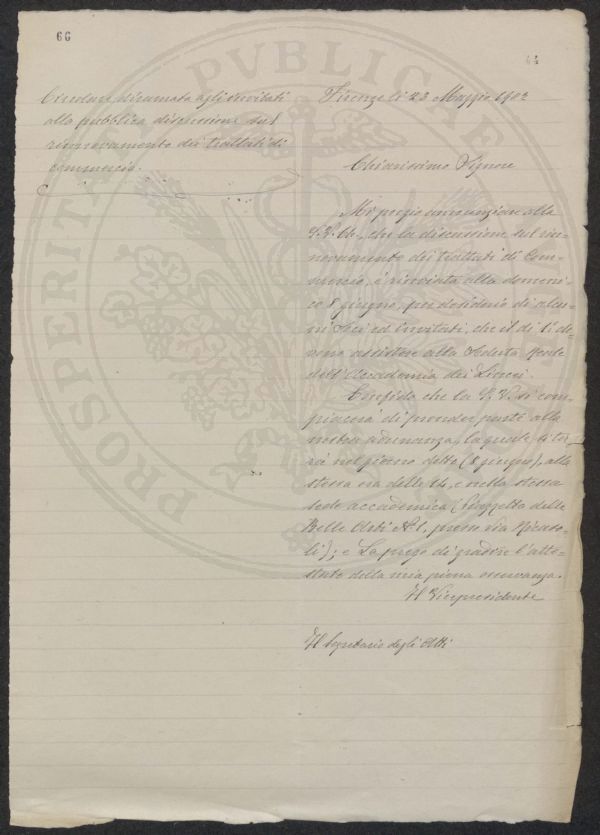 66
44
Circolare diramata agli invitati
alla pubblica discussione sul
rinnovamento dei trattati di
commercio.
Firenze li 23 Maggio 1902
Chiarissimo Signore
Mi pregio annunziare alla
S.V. Ch., che la discussione sul rin-
novamento dei trattati di Com-
mercio, è rinviata alla domeni-
ca 8 giugno, per desiderio di alcu-
ni Soci ed invitati, che il dì 1. de-
vono assistere alla Seduta Reale
dell'Accademia dei Lincei.
Confido che la S.V. si com-
piacerà di prender parte alla
nostra adunanza, la quale si ter-
rà nel giorno detto (8 giugno), alla
stessa ora delle 14, e nella stessa
sede accademica (Piazzetta delle
Belle Arti N. 1, presso via Ricaso-
li); e La prego di gradire l'atte-
stato della mia piena osservanza.
Il Vicepresidente
Il Segretario degli Atti
PROSPERITATI PVBLICAE